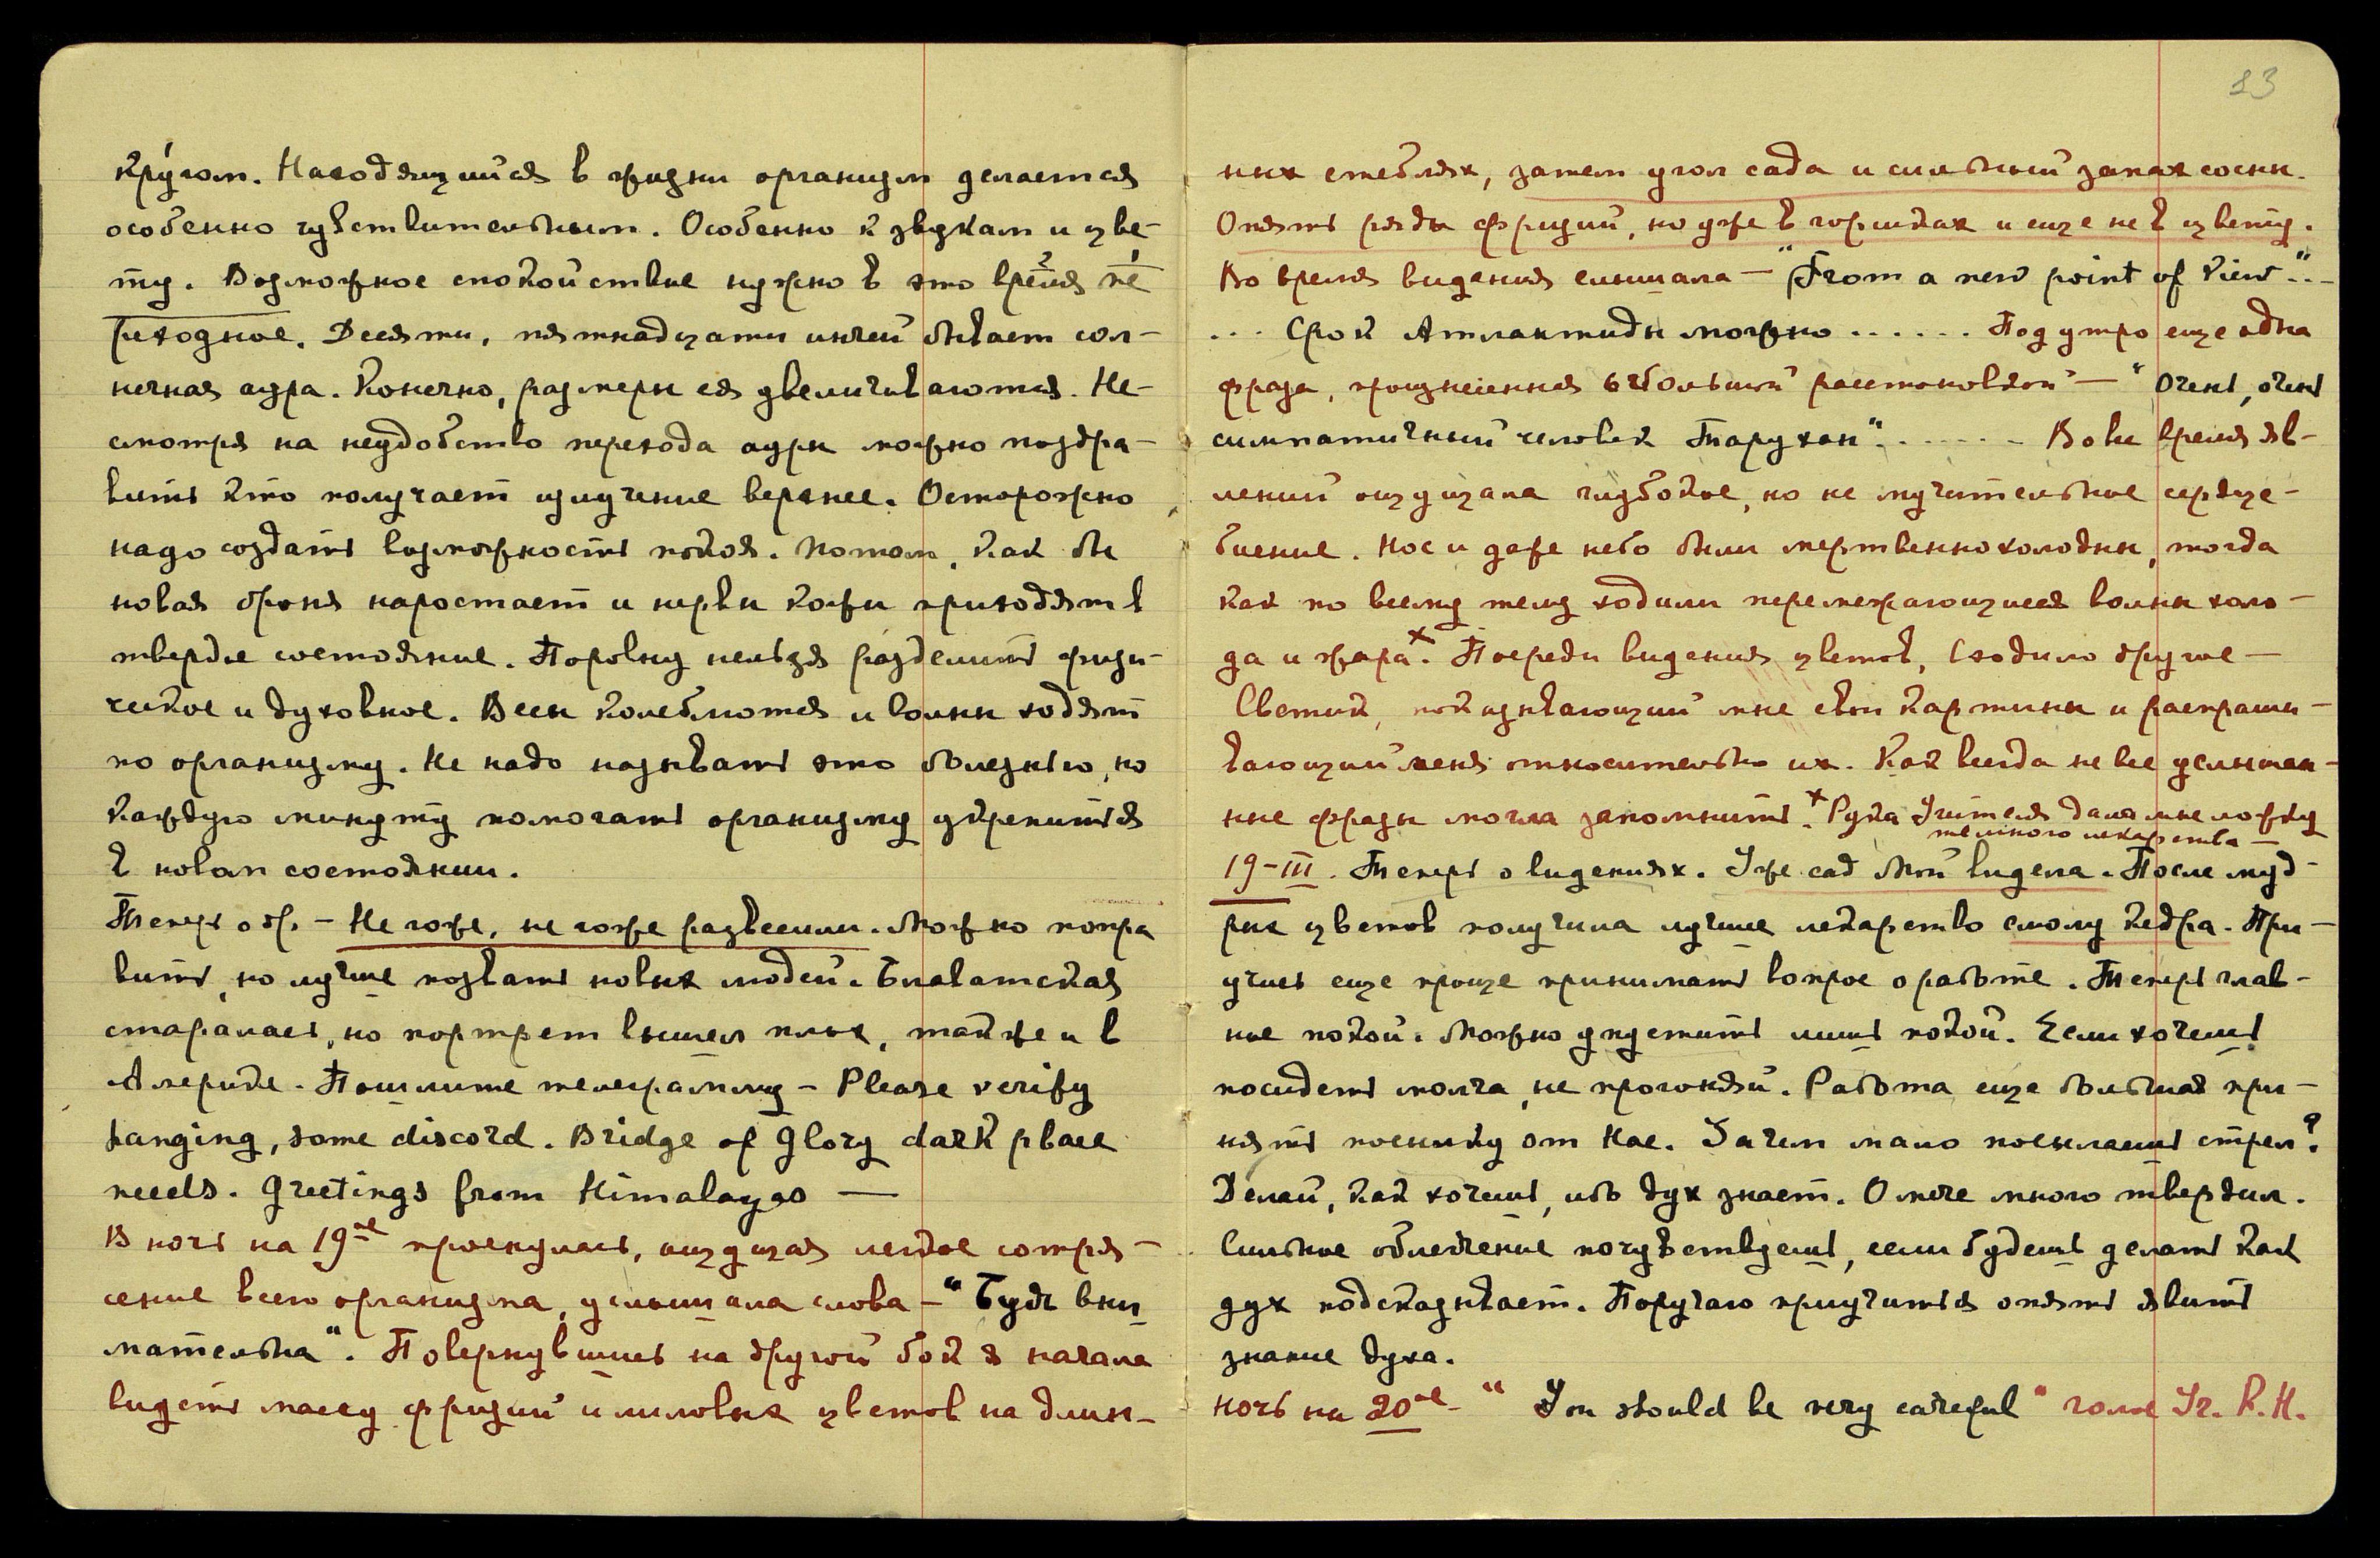 кругом. Находящийся в жизни организм делается
особенно чувствительным. Особенно к звукам и цве-
ту. Возможное спокойствие нужно в это время пе-
реходное. Десяти, пятнадцати инчей бывает сол-
нечная аура. Конечно, размеры ея увеличиваются. Не-
смотря на неудобство перехода ауры можно поздра-
вить кто получает излучение верхнее. Осторожно
надо создать возможность покоя. Потом, как бы
новая броня наростает и нервы кожи приходят в
твердое состояние. Поровну нельзя разделить физи-
ческое и духовное. Весы колеблются и волны ходят
по организму. Не надо называть это болезнью, но
каждую минуту помогать организму укрепиться
в новом состоянии.
Теперь о др. – Не гоже, не гоже развесили. Можно попра
вить, но лучше позвать новых людей. Блаватская
старалась, но портрет вышел плох, также и в
Америке. Пошлите телеграмму – Please verify
hanging, some discord. Bridge of Glory dark place
needs. Greetings from Himalayas —
В ночь на 19ое проснулась, ощущая легкое сотря-
сение всего организма, услышала слова – "Будь вни
мательна". Повернувшись на другой бок я начала
видеть массу фризий и лиловых цветов на длин-
23
ных стеблях, затем угол сада и сильный запах сосны.
Опять ряды фризий, но уже в горшках и еще не в цвету.
Во время видения слышала – "From a new point of view"..-
... Срок Атлантиды можно ...... Под утро еще одна
фраза, произнесенная с большой расстановкой – "Очень, очень
симпатичный человек Тарухан"....... Во вр. время яв-
лений ощущала глубокое, но не мучительное сердце-
биение. Нос и даже небо были мертвенно холодны, тогда
как по всему телу ходили перемежающиеся волны холо-
да и жара.x Посреди видения цветов, входило другое –
Светик, показывающий мне свои картины и распраши-
вающий меня относительно их. Как всегда не все услышан-
ные фразы могла запомнить.x Рука Учителя дала мне ложку
темного лекарства –
19-III. Теперь о видениях. Уже сад Мой видела. После муд-
рых цветов получила лучшее лекарство смолу кедра. При-
учись еще проще принимать вопрос о работе. Теперь глав-
ное покой. Можно упустить лишь покой. Если хочешь
посидеть молча, не прогоняй. Работа еще большая при-
нять посылку от Нас. Зачем мало посылаешь стрел?
Делай, как хочешь, ибо дух знает. О мече много твердил.
Сильное облегчение почувствуешь, если будешь делать как
дух подсказывает. Поручаю приучиться опять явить
знание духа.
Ночь на 20ое – "You should be very careful" голос Уч. К.Н.